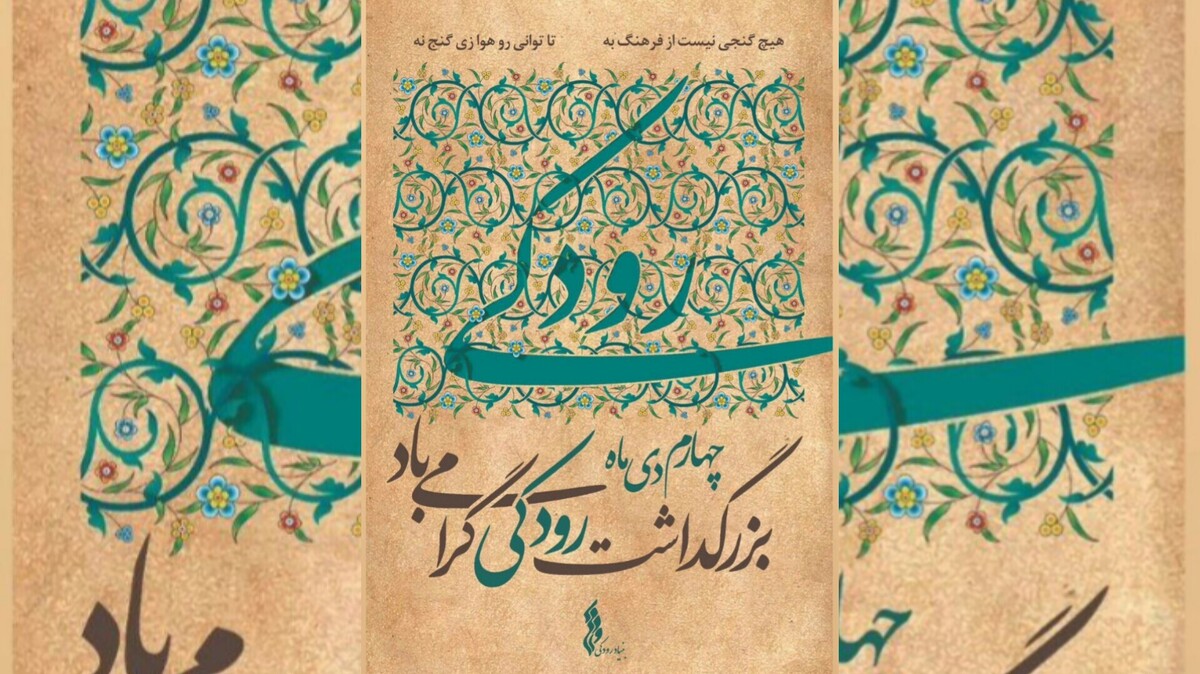 هیچ گنجی نیست از فرهنگ به تا توانی رو هوا زی گنج نه
رودکی
چهارم دی ماه
بزرگداشت رودکی گرامی باد
بنیاد رودکی